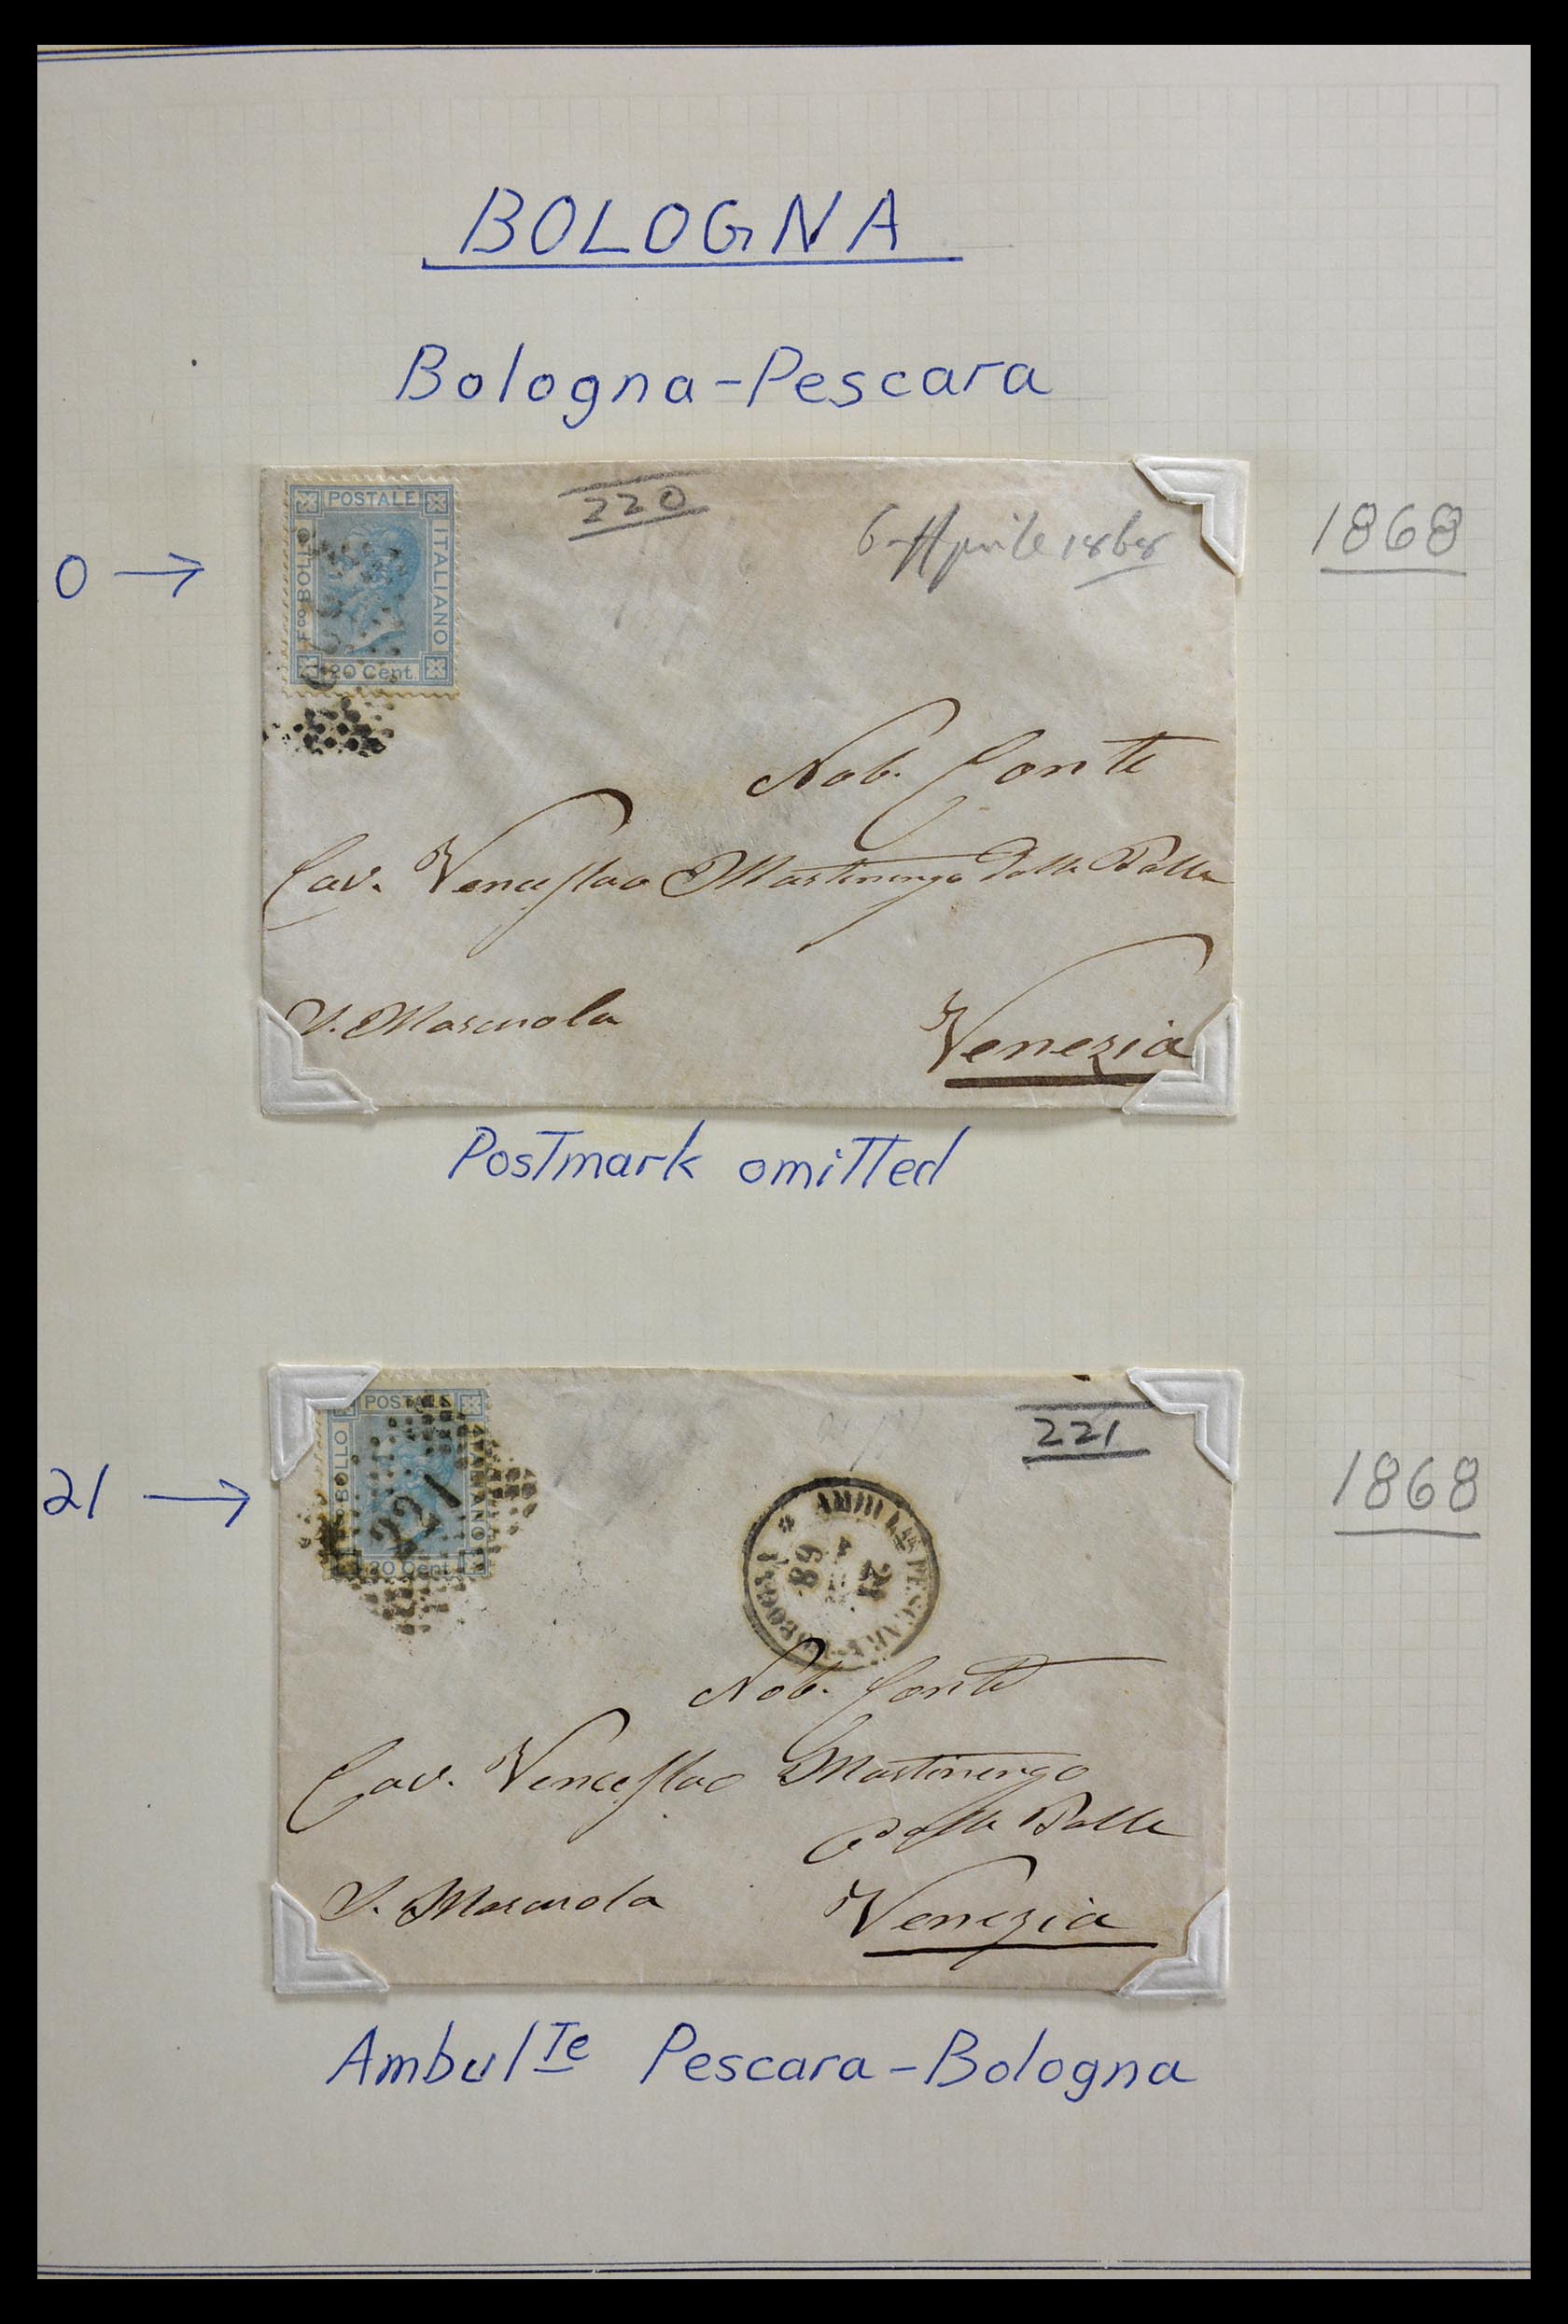 BOLOGNA
Bologna-Pescara
0 →
POSTALE
ITALIANO
BOLLO
20 Cent.
220
6 Aprile 1868
1868
Nob. Conte
Cav. Venceslao Martinengo Dalle Palle
Venezia
Postmark omitted
21 →
POSTALE
BOLLO
20 Cent
221
221
PESCARA
21
68
1868
Nob. Conte
Cav. Venceslao Martinengo
Dalle Palle
Venezia
Ambul Te Pescara-Bologna